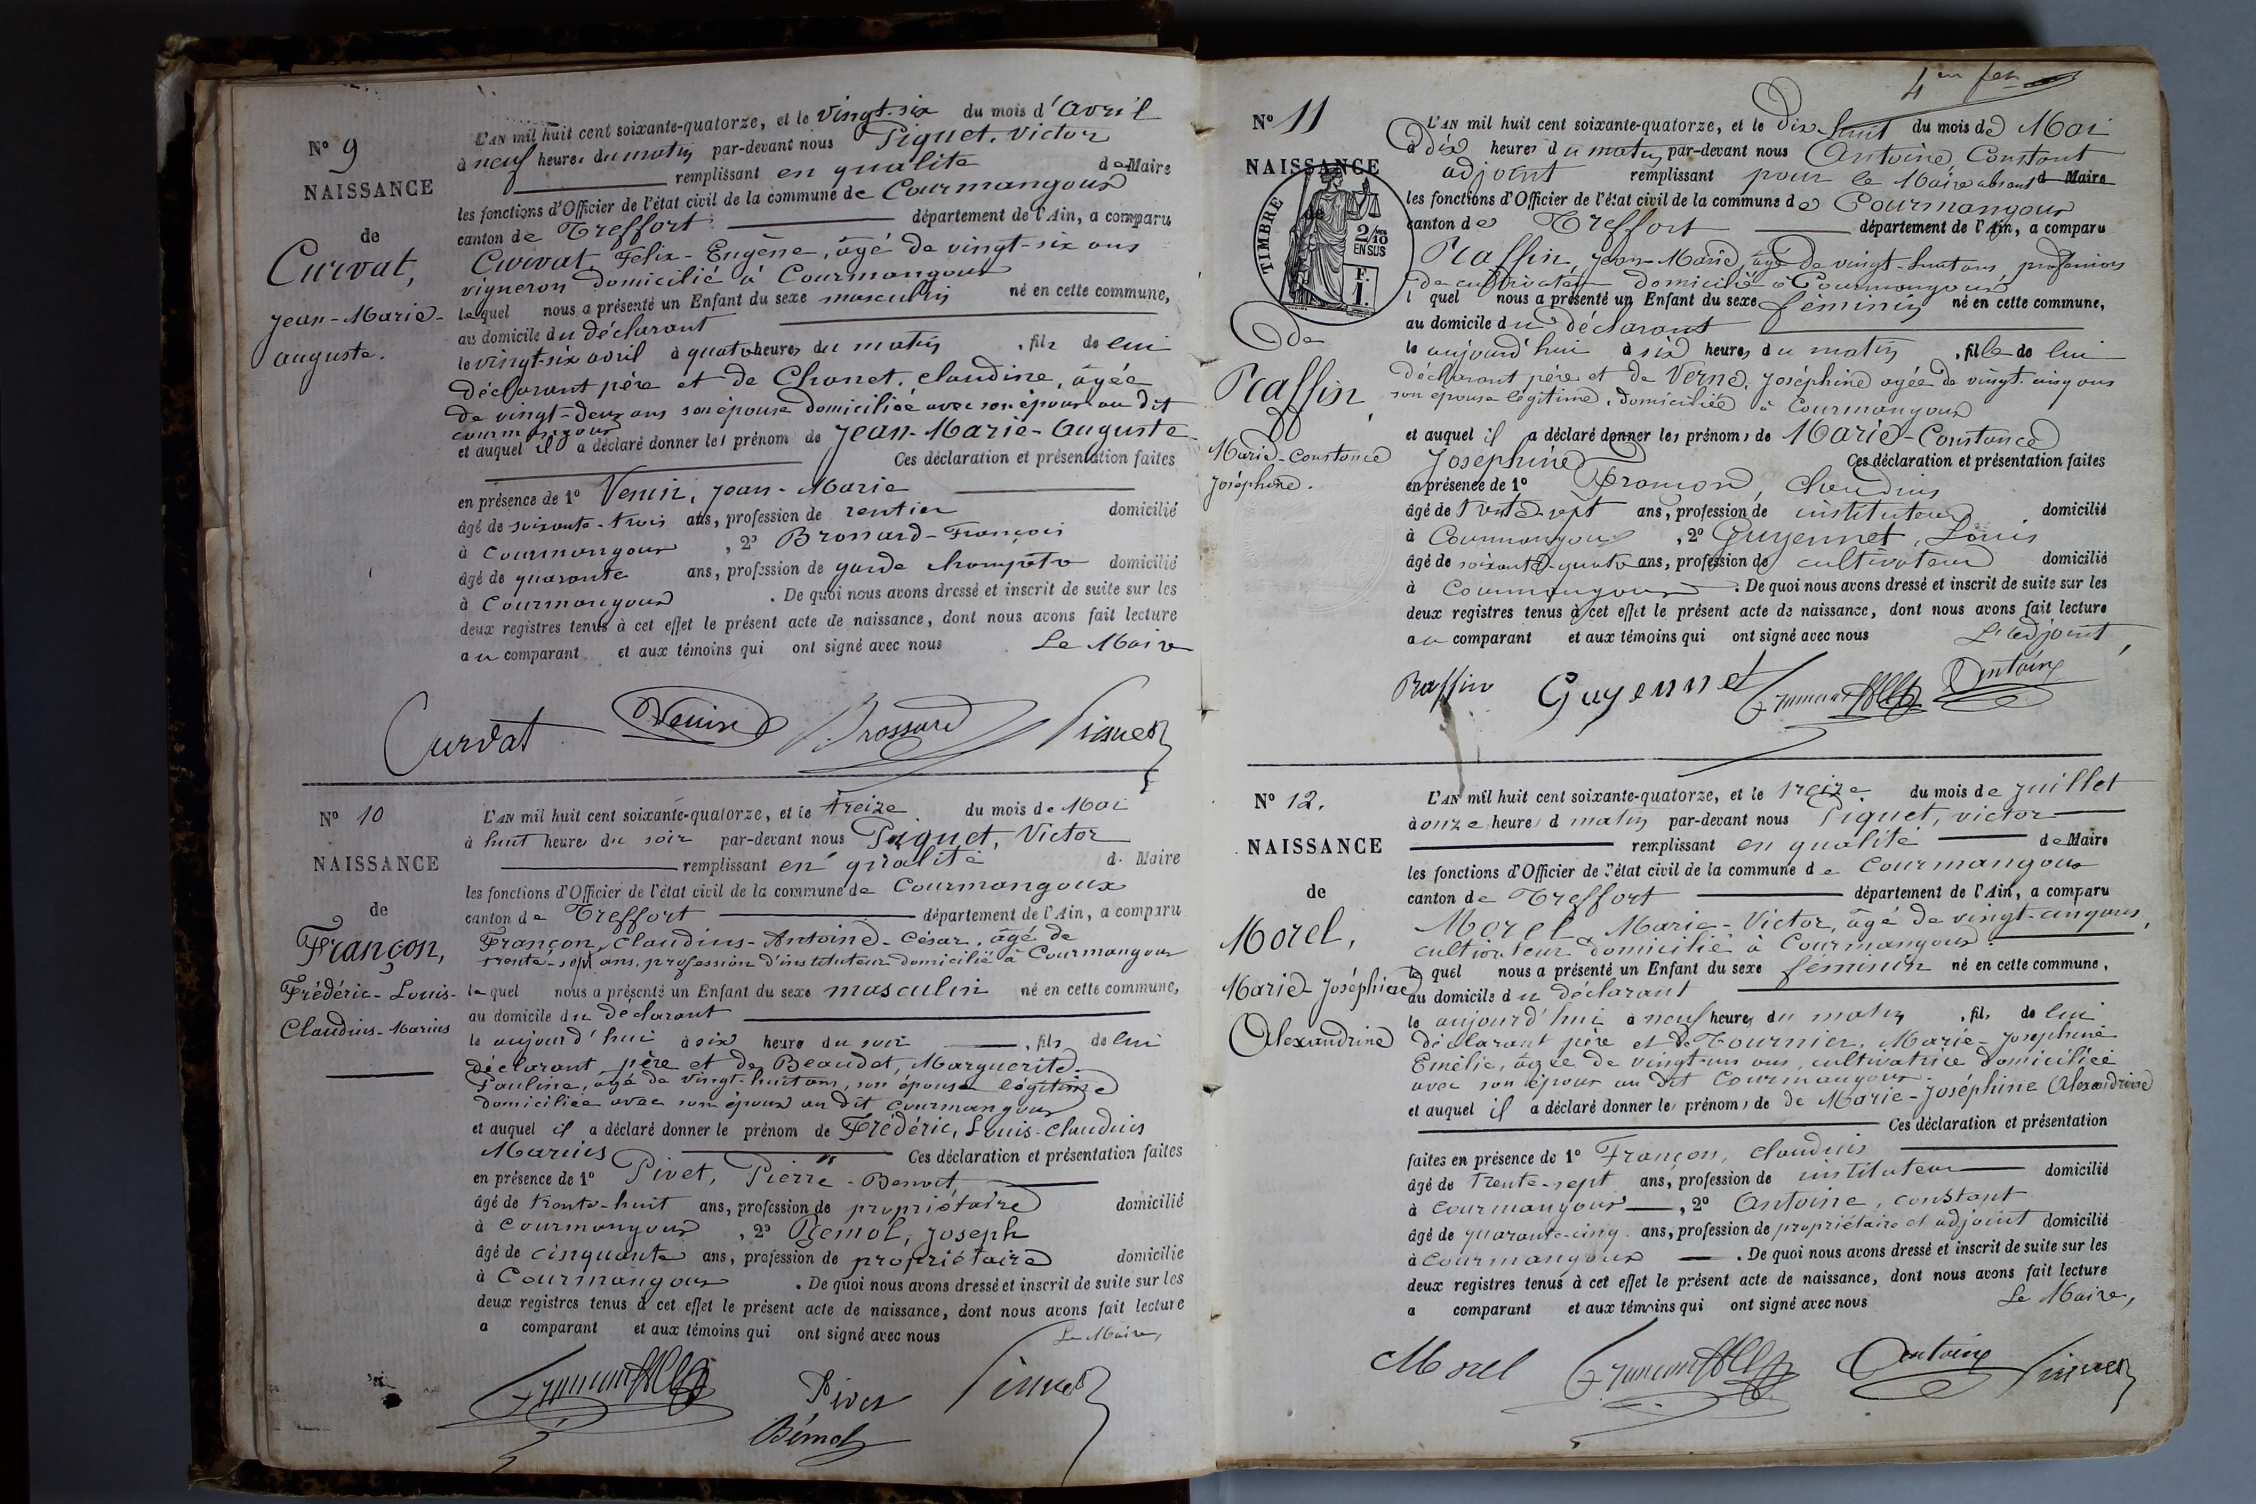 N° 9
NAISSANCE
de
Curvat,
Jean-Marie-
auguste.
L'AN mil huit cent soixante-quatorze, et le vingt-six du mois d'avril
à neuf heures du matin par-devant nous Piquet, Victor
remplissant en qualité de Maire
les fonctions d'Officier de l'état civil de la commune de Courmangoux
canton de Treffort département de l'Ain, a comparu
Curvat, Félix-Eugène, âgé de vingt-six ans
vigneron domicilié à Courmangoux
lequel nous a présenté un Enfant du sexe masculin né en cette commune,
au domicile du déclarant
le vingt-six avril à quatre heures du matin, fils de lui
déclarant père et de Chanet, claudine, âgée
de vingt-deux ans son épouse domiciliée avec son époux au dit
courmangoux
et auquel il a déclaré donner les prénom de Jean-Marie-Auguste
Ces déclaration et présentation faites
en présence de 1° Venin, Jean-Marie
âgé de soixante-trois ans, profession de rentier domicilié
à Courmangoux, 2° Brossard-François
âgé de quarante ans, profession de garde champêtre domicilié
à Courmangoux. De quoi nous avons dressé et inscrit de suite sur les
deux registres tenus à cet effet le présent acte de naissance, dont nous avons fait lecture
au comparant et aux témoins qui ont signé avec nous Le Maire
Curvat Venin Brossard Piquet
N° 10
NAISSANCE
de
Françon,
Frédéric-Louis-
Claudius-Marius
L'AN mil huit cent soixante-quatorze, et le treize du mois de Mai
à huit heures du soir par-devant nous Piquet, Victor
remplissant en qualité de Maire
les fonctions d'Officier de l'état civil de la commune de Courmangoux
canton de Treffort département de l'Ain, a comparu
Françon, Claudius-Antoine-César, âgé de
trente-sept ans, profession d'instituteur domicilié à Courmangoux
lequel nous a présenté un Enfant du sexe masculin né en cette commune,
au domicile du déclarant
le aujourd'hui à six heures du soir, fils de lui
déclarant père et de Beaudet, Marguerite
Pauline, âgé de vingt-huit ans, son épouse légitime
domiciliée avec son époux au dit courmangoux
et auquel il a déclaré donner le prénom de Frédéric, Louis-claudius
Marius Ces déclaration et présentation faites
en présence de 1° Pivet, Pierre-Benoit
âgé de trente-huit ans, profession de propriétaire domicilié
à Courmangoux, 2° Bemol, Joseph
âgé de cinquante ans, profession de propriétaire domicilié
à Courmangoux. De quoi nous avons dressé et inscrit de suite sur les
deux registres tenus à cet effet le présent acte de naissance, dont nous avons fait lecture
a comparant et aux témoins qui ont signé avec nous Le Maire,
Pivet Piquet
Bémol
N° 11
NAISSANCE
TIMBRE
2/10
EN SUS
F.
1.
de
Raffin,
Marie-Constance
Joséphine.
L'AN mil huit cent soixante-quatorze, et le dix-huit du mois de Mai
à dix heures du matin par-devant nous Antoine, Constant
adjoint remplissant pour le Maire absent d Maire
les fonctions d'Officier de l'état civil de la commune de Courmangoux
canton de Treffort département de l'Ain, a comparu
Raffin, Jean-Marie, âgé de vingt-huit ans, profession
de cultivateur domicilié à Courmangoux
l quel nous a présenté un Enfant du sexe féminin né en cette commune,
au domicile du déclarant
le aujourd'hui à six heures du matin, fille de lui
déclarant père et de Verne, Joséphine âgée de vingt-cinq ans
son épouse légitime, domiciliée à Courmangoux
et auquel il a déclaré donner les prénoms de Marie-Constance
Joséphine Ces déclaration et présentation faites
en présence de 1° Françon, Claudius
âgé de trente-sept ans, profession de instituteur domicilié
à Courmangoux, 2° Guyennet, Louis
âgé de soixante-quatre ans, profession de cultivateur domicilié
à Courmangoux. De quoi nous avons dressé et inscrit de suite sur les
deux registres tenus à cet effet le présent acte de naissance, dont nous avons fait lecture
au comparant et aux témoins qui ont signé avec nous L'adjoint,
Raffin Guyennet Antoine
N° 12.
NAISSANCE
de
Morel,
Marie-Joséphine
Alexandrine
L'AN mil huit cent soixante-quatorze, et le treize du mois de Juillet
à onze heures d matin par-devant nous Piquet, Victor
remplissant en qualité de Maire
les fonctions d'Officier de l'état civil de la commune de Courmangoux
canton de Treffort département de l'Ain, a comparu
Morel, Marie-Victor, âgé de vingt-cinq ans,
cultivateur domicilié à Courmangoux.
le quel nous a présenté un Enfant du sexe féminin né en cette commune,
au domicile du déclarant
le aujourd'hui à neuf heures du matin, fil de lui
déclarant père et de Tournier, Marie-Joséphine
Emélie, âgée de vingt-un ans, cultivatrice domiciliée
avec son époux au dit Courmangoux
et auquel il a déclaré donner les prénoms de de Marie-Joséphine Alexandrine
Ces déclaration et présentation
faites en présence de 1° Françon, Claudius
âgé de trente-sept ans, profession de instituteur domicilié
à Courmangoux, 2° Antoine, Constant
âgé de quarante-cinq ans, profession de propriétaire et adjoint domicilié
à Courmangoux. De quoi nous avons dressé et inscrit de suite sur les
deux registres tenus à cet effet le présent acte de naissance, dont nous avons fait lecture
a comparant et aux témoins qui ont signé avec nous Le Maire,
Morel Antoine Piquet